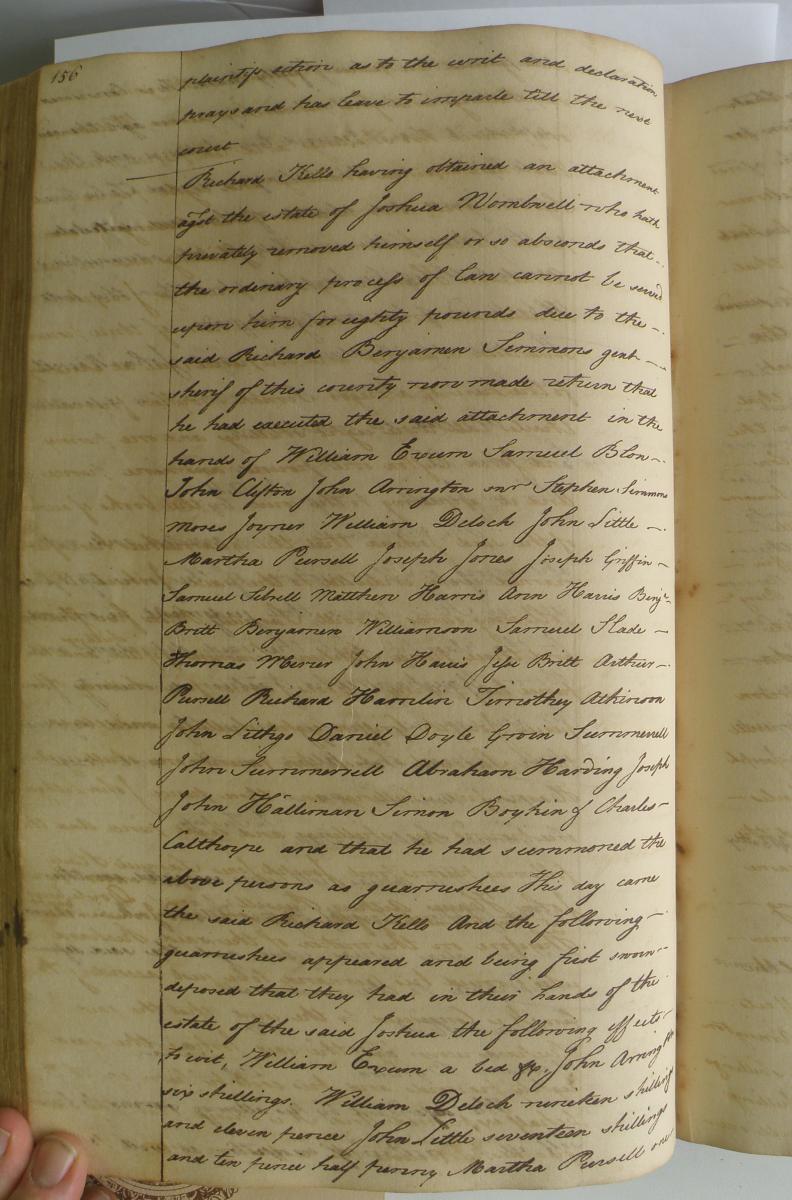 156
plaintifs action as to the writ and declaration
prays and has leave to imparle till the next
court
Richard Kello having obtained an attachment
agst the estate of Joshua Wombwell who hath
privately removed himself or so absconds that
the ordinary process of law cannot be served
upon him for eighty pounds due to the
said Richard Benjamen Simmons gent
sherif of this county now made return that
he had executed the said attachment in the
hands of William Exum Samuel Blow
John Clifton John Arrington snr Stephen Simmons
Moses Joyner William Deloch John Little
Martha Pursell Joseph Jones Joseph Griffin
Samuel Sebrell Matthew Harris Ann Harris Benjn
Britt Benjamen Williamson Samuel Slade
Thomas Mercer John Harris Jesse Britt Arthur
Pursell Richard Hamlin Timothey Atkinson
John Lithgo Daniel Doyle Groin Summerrell
John Summerrell Abraham Harding Joseph
John Halliman Simon Boykin & Charles
Calthorpe and that he had summoned the
above persons as guarnishees This day came
the said Richard Kello And the following
guarnishees appeared and being first sworn
deposed that they had in their hands of the
estate of the said Joshua the following effects
to wit, William Exum a bed &c. John Arring
six shillings. William Deloch nineteen shillings
and eleven pence John Little seventeen shillings
and ten pence half penny Martha Pursell one